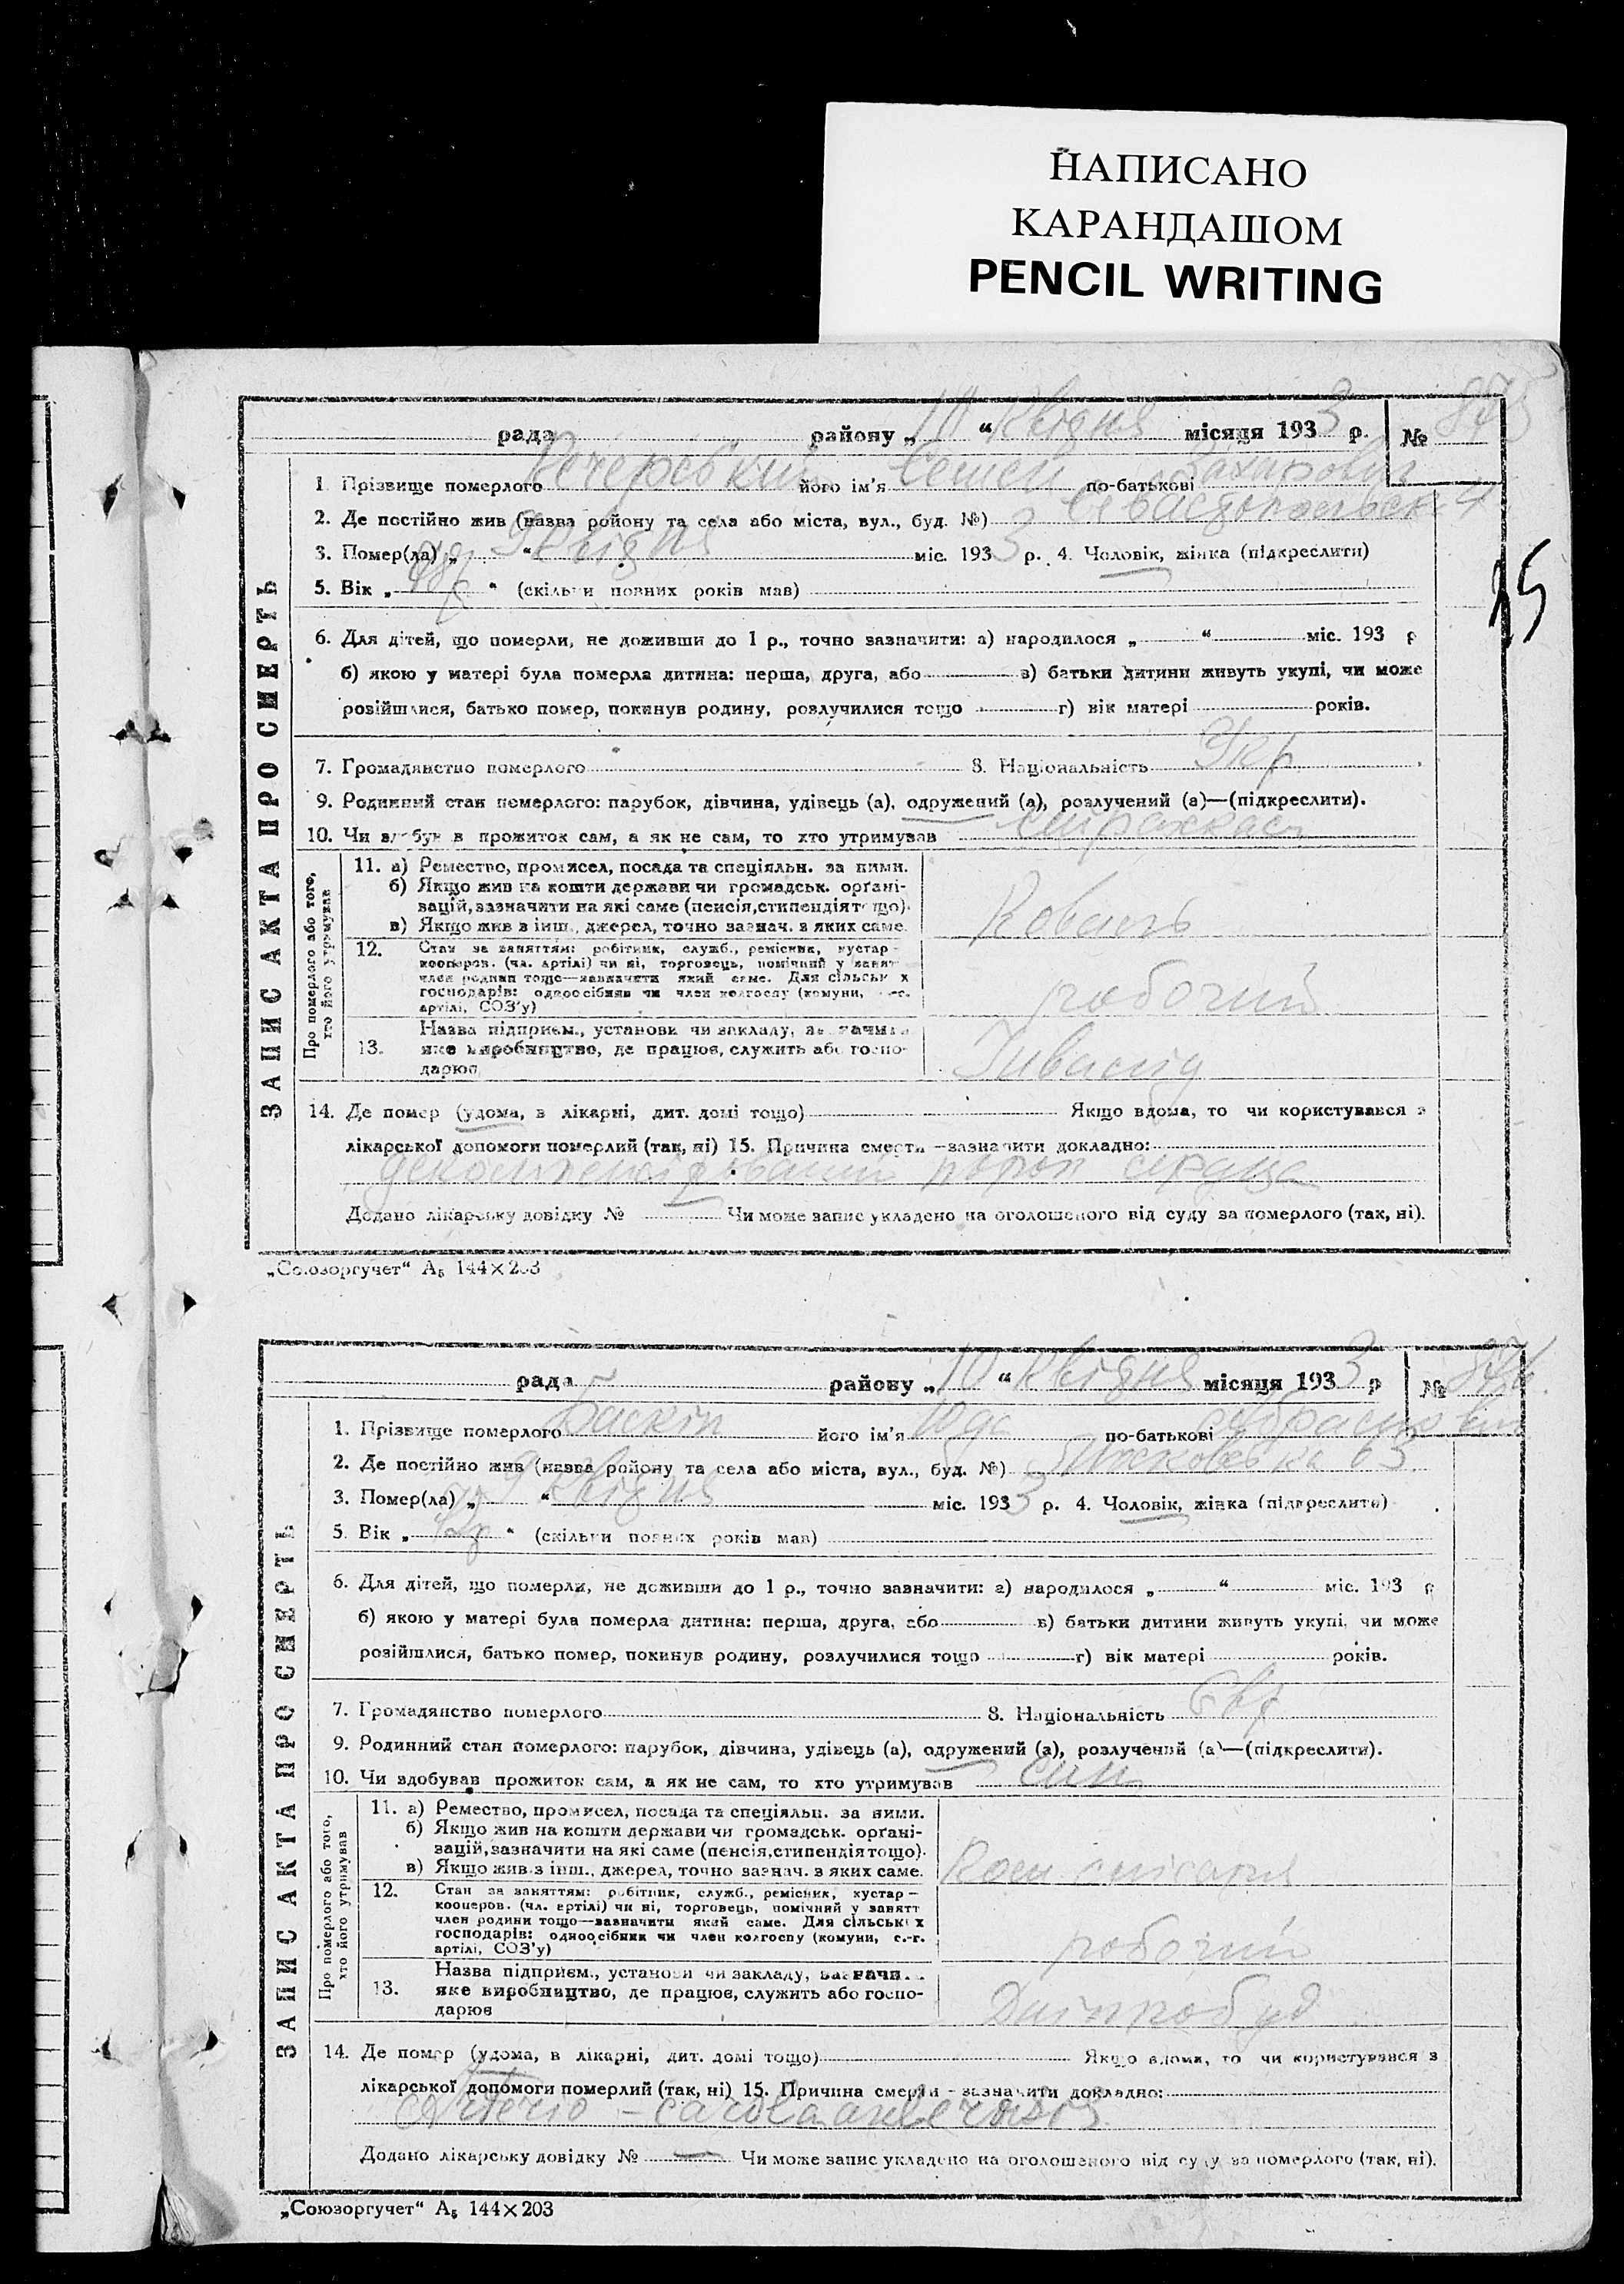 НАПИСАНО
КАРАНДАШОМ
PENCIL WRITING
рада району „10“ Квітня місяця 1933 р. № 875
1. Прізвище померлого Печерський його ім'я Семен по-батькові Захарович
2. Де постійно жив (назва ройону та села або міста, вул., буд. №) Севастопольськ 4
3. Помер(ла) „9“ Квітня міс. 1933 р. 4. Чоловік, жінка (підкреслити)
5. Вік „ “ (скільки повних років мав)
6. Для дітей, що померли, не доживши до 1 р., точно зазначити: а) народилося „ “ міс. 193 р
б) якою у матері була померла дитина: перша, друга, або в) батьки дитини живуть укупі, чи може
розійшлися, батько помер, покинув родину, розлучилися тощо г) вік матері років.
7. Громадянство померлого 8. Національність Укр
9. Родинний стан померлого: парубок, дівчина, удівець (а), одружений (а), розлучений (а)—(підкреслити).
10. Чи здобув в прожиток сам, а як не сам, то хто утримував страхкаса
ЗАПИС АКТА ПРО СМЕРТЬ
Про померлого або того,
хто його утримував
11. а) Ремество, промисел, посада та спеціяльн. за ними.
б) Якщо жив на кошти держави чи громадськ. орґані-
зацій, зазначити на які саме (пенсія, стипендія тощо).
в) Якщо жив з інш., джерел, точно зазнач. з яких саме.
Коваль
12. Стан за заняттям: робітник, служб., ремісник, кустар-
кооперов. (чл. артілі) чи ні, торговець, помічний у занятт
член родини тощо—зазначити який саме. Для сільськ х
господарів: одноосібник чи член колгоспу (комуни, с.-г.
артілі, СОЗ'у)
робочий
13. Назва підприєм., установи чи закладу, зазначити
яке виробництво, де працює, служить або госпо-
дарює
Інвалід
14. Де помер (удома, в лікарні, дит. домі тощо) Якщо вдома, то чи користувався з
лікарської допомоги померлий (так, ні) 15. Причина смерти—зазначити докладно:
декомпенсірований порок серця
Додано лікарську довідку № Чи може запис укладено на оголошеного від суду за померлого (так, ні).
„Союзоргучет“ А₅ 144×203
рада району „10“ Квітня місяця 1933 р № 876.
1. Прізвище померлого Баскін його ім'я Юда по-батькові Абрамович
2. Де постійно жив (назва ройону та села або міста, вул., буд. №) 63
3. Помер(ла) „9“ Квітня міс. 1933 р. 4. Чоловік, жінка (підкреслити)
5. Вік „ “ (скільки повних років мав)
6. Для дітей, що померли, не доживши до 1 р., точно зазначити: а) народилося „ “ міс. 193 р
б) якою у матері була померла дитина: перша, друга, або в) батьки дитини живуть укупі, чи може
розійшлися, батько помер, покинув родину, розлучилися тощо г) вік матері років.
7. Громадянство померлого 8. Національність Євр
9. Родинний стан померлого: парубок, дівчина, удівець (а), одружений (а), розлучений (а)—(підкреслити).
10. Чи здобував прожиток сам, а як не сам, то хто утримував син
ЗАПИС АКТА ПРО СМЕРТЬ
Про померлого або того,
хто його утримував
11. а) Ремество, промисел, посада та спеціяльн. за ними.
б) Якщо жив на кошти держави чи громадськ. орґані-
зацій, зазначити на які саме (пенсія, стипендія тощо).
в) Якщо жив з інш., джерел, точно зазнач. з яких саме.
слюсаря
12. Стан за заняттям: робітник, служб., ремісник, кустар-
кооперов. (чл. артілі) чи ні, торговець, помічний у занятт
член родини тощо—зазначити який саме. Для сільськ х
господарів: одноосібник чи член колгоспу (комуни, с.-г.
артілі, СОЗ'у)
робочий
13. Назва підприєм., установи чи закладу, зазначи
яке виробництво, де працює, служить або госпо-
дарює
Дніпробуд
14. Де помер (удома, в лікарні, дит. домі тощо) Якщо вдома, то чи користувався з
лікарської допомоги померлий (так, ні) 15. Причина смерти—зазначити докладно:
Arterio-cardiosclerosis
Додано лікарську довідку № — Чи може запис укладено на оголошеного від суду за померлого (так, ні).
„Союзоргучет“ А₅ 144×203